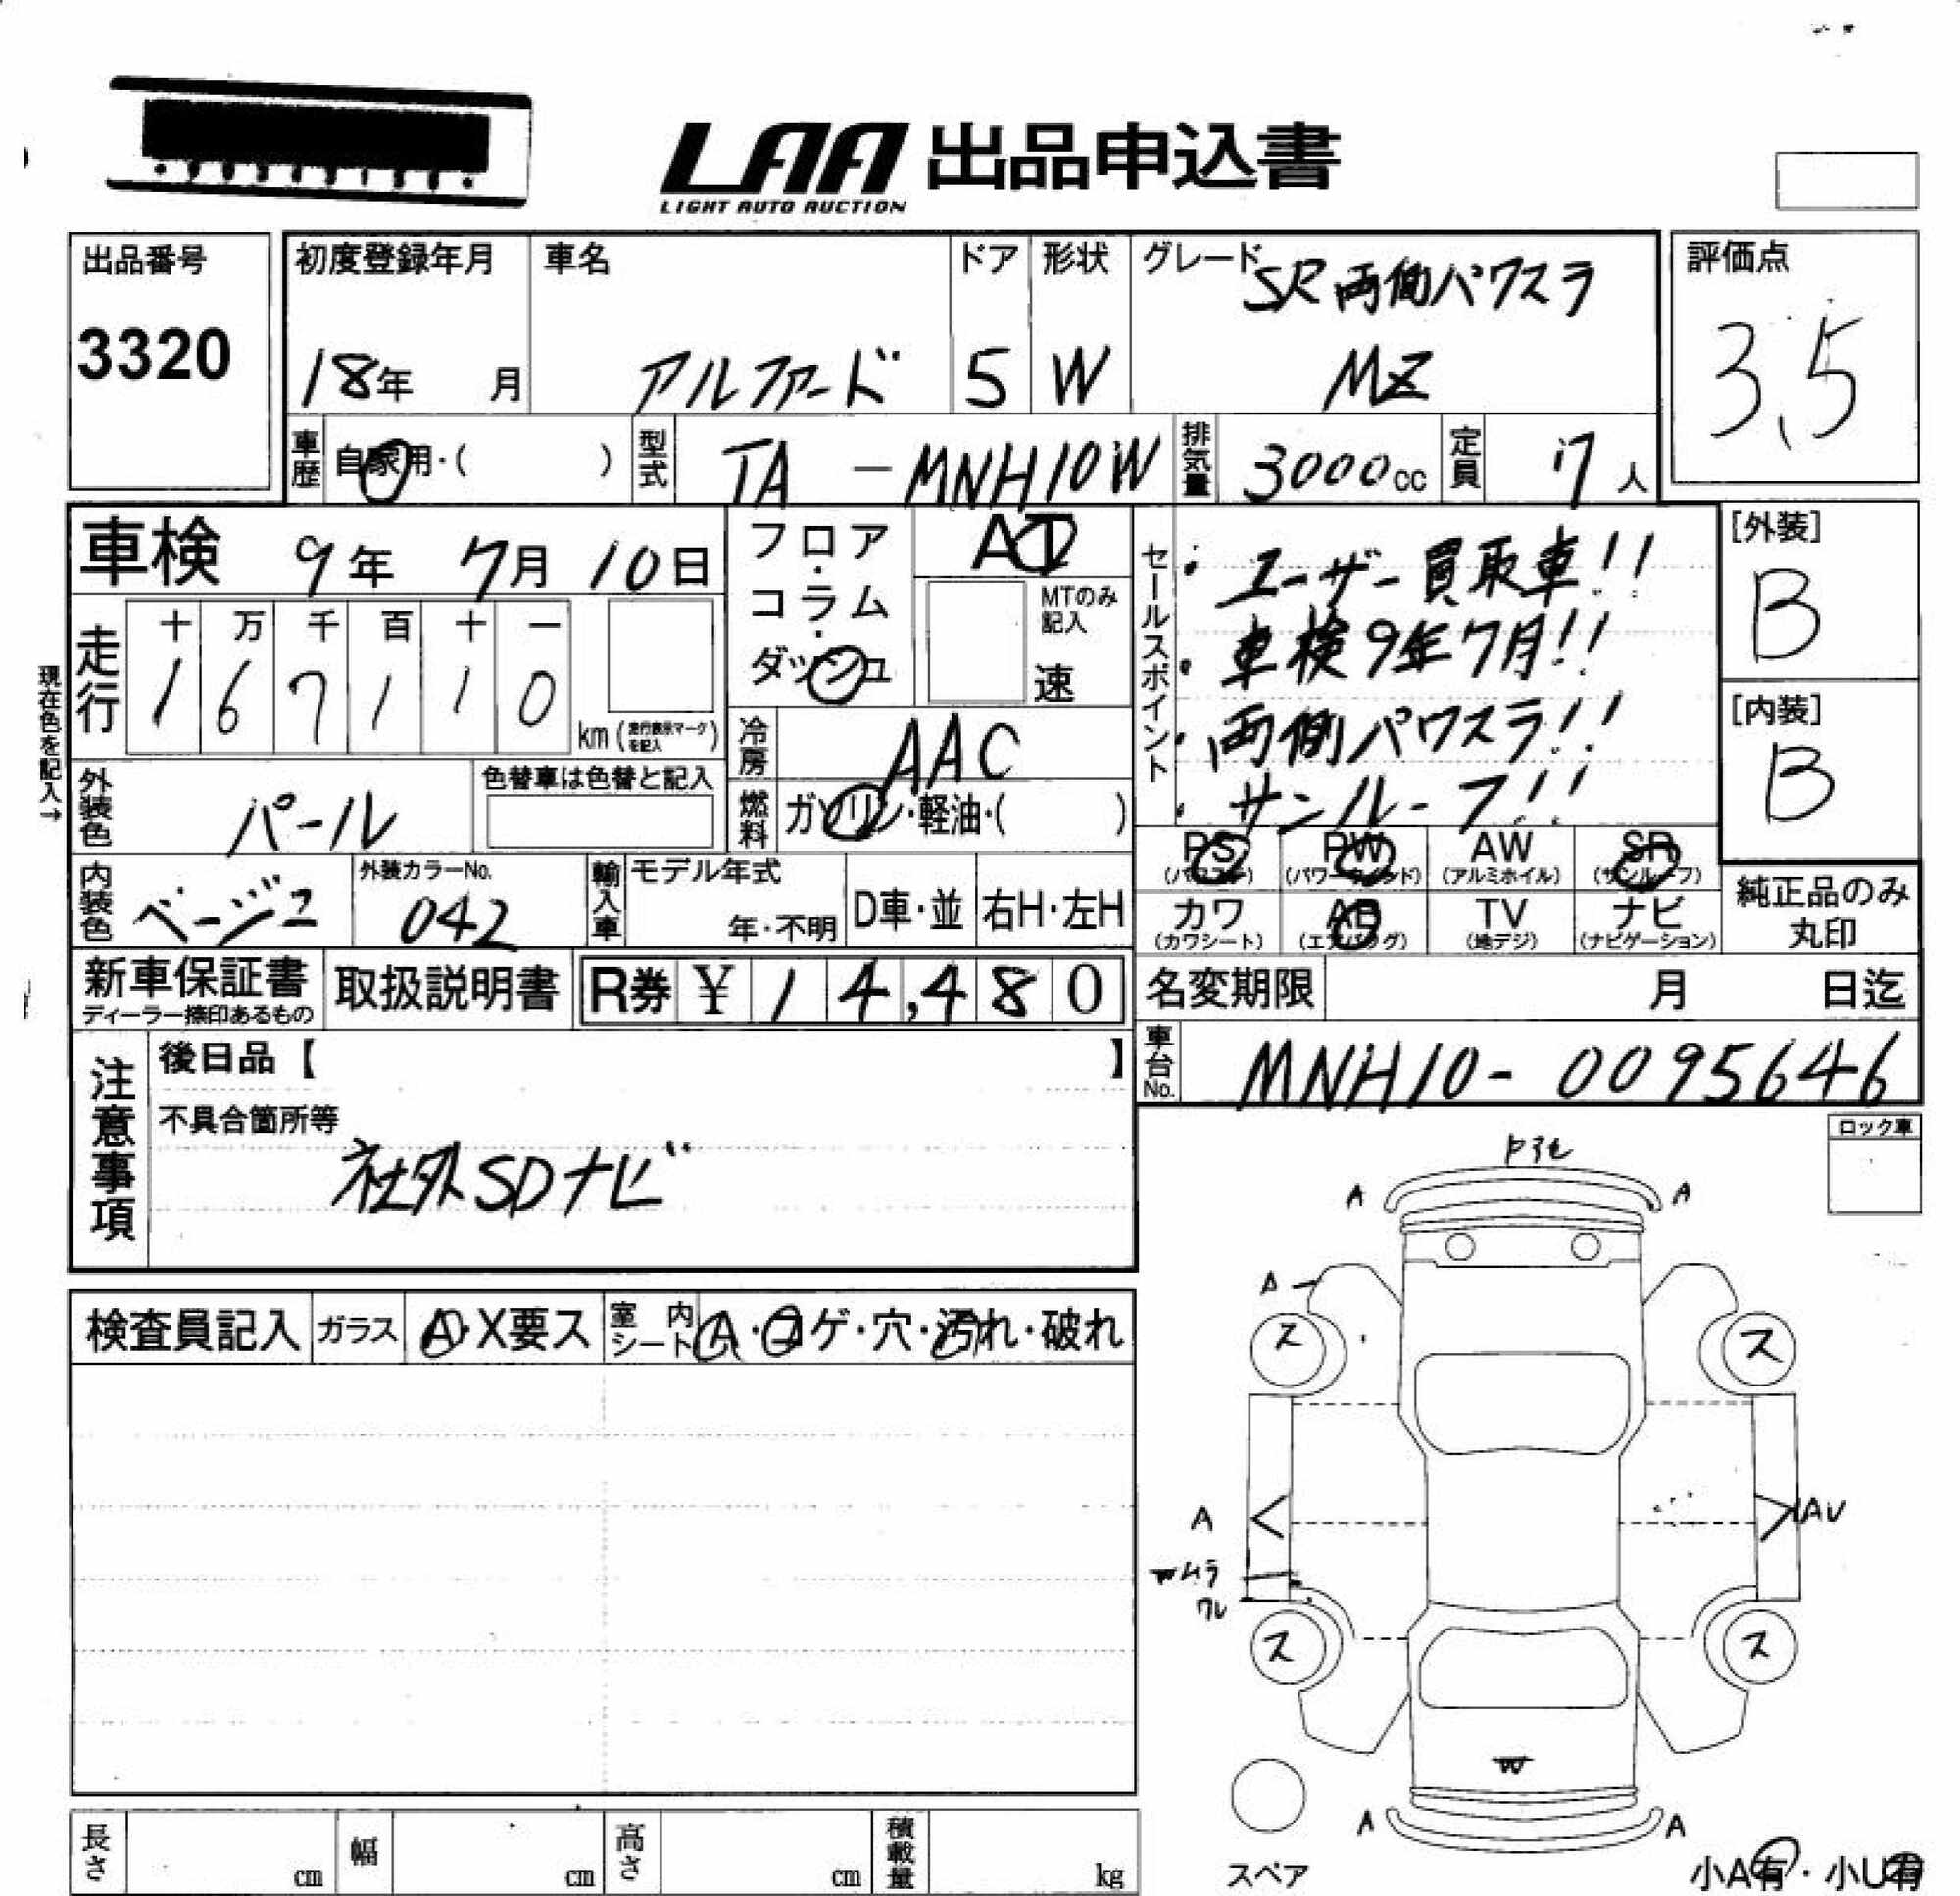 LAA 出品申込書
LIGHT AUTO AUCTION
出品番号
3320
初度登録年月
18年 月
車名
アルファード
ドア
5
形状
W
グレード
SR 両側パワスラ
MZ
評価点
3.5
車歴
自家用・( )
型式
TA - MNH10W
排気量
3000cc
定員
7人
車検 9年 7月 10日
走行
十 万 千 百 十 一
1 6 7 1 1 0
km
現在色を記入→
外装色
パール
色替車は色替と記入
内装色
ベージュ
外装カラーNo.
042
フロア・コラム・ダッシュ
AT
MTのみ記入
速
冷房
AAC
燃料
ガソリン・軽油・( )
輸入車
モデル年式
年・不明
D車・並
右H・左H
セールスポイント
・ユーザー買取車!!
・車検9年7月!!
・両側パワスラ!!
・サンルーフ!!
[外装]
B
[内装]
B
PS
(パワステ)
PW
(パワーウインド)
AW
(アルミホイル)
SR
(サンルーフ)
カワ
(カワシート)
AB
(エアバッグ)
TV
(地デジ)
ナビ
(ナビゲーション)
純正品のみ
丸印
新車保証書
ディーラー捺印あるもの
取扱説明書
R券 ¥ 14,480
名変期限 月 日迄
車台No.
MNH10-0095646
注意事項
後日品【 】
不具合箇所等
社外SDナビ
ロック車
検査員記入
ガラス
A・X要ス
室内シート
A・コゲ・穴・汚れ・破れ
A A
A
ス ス
A AU
Wムラ
ワレ
ス ス
W
A A
スペア
小A有・小U有
長さ cm
幅 cm
高さ cm
積載量 kg